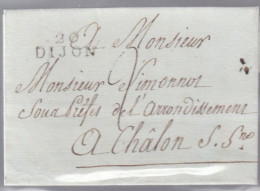 20
DIJON
A Monsieur
Monsieur Simonnot
Sous Préfet de l'arrondissement
A Châlon S. Sne